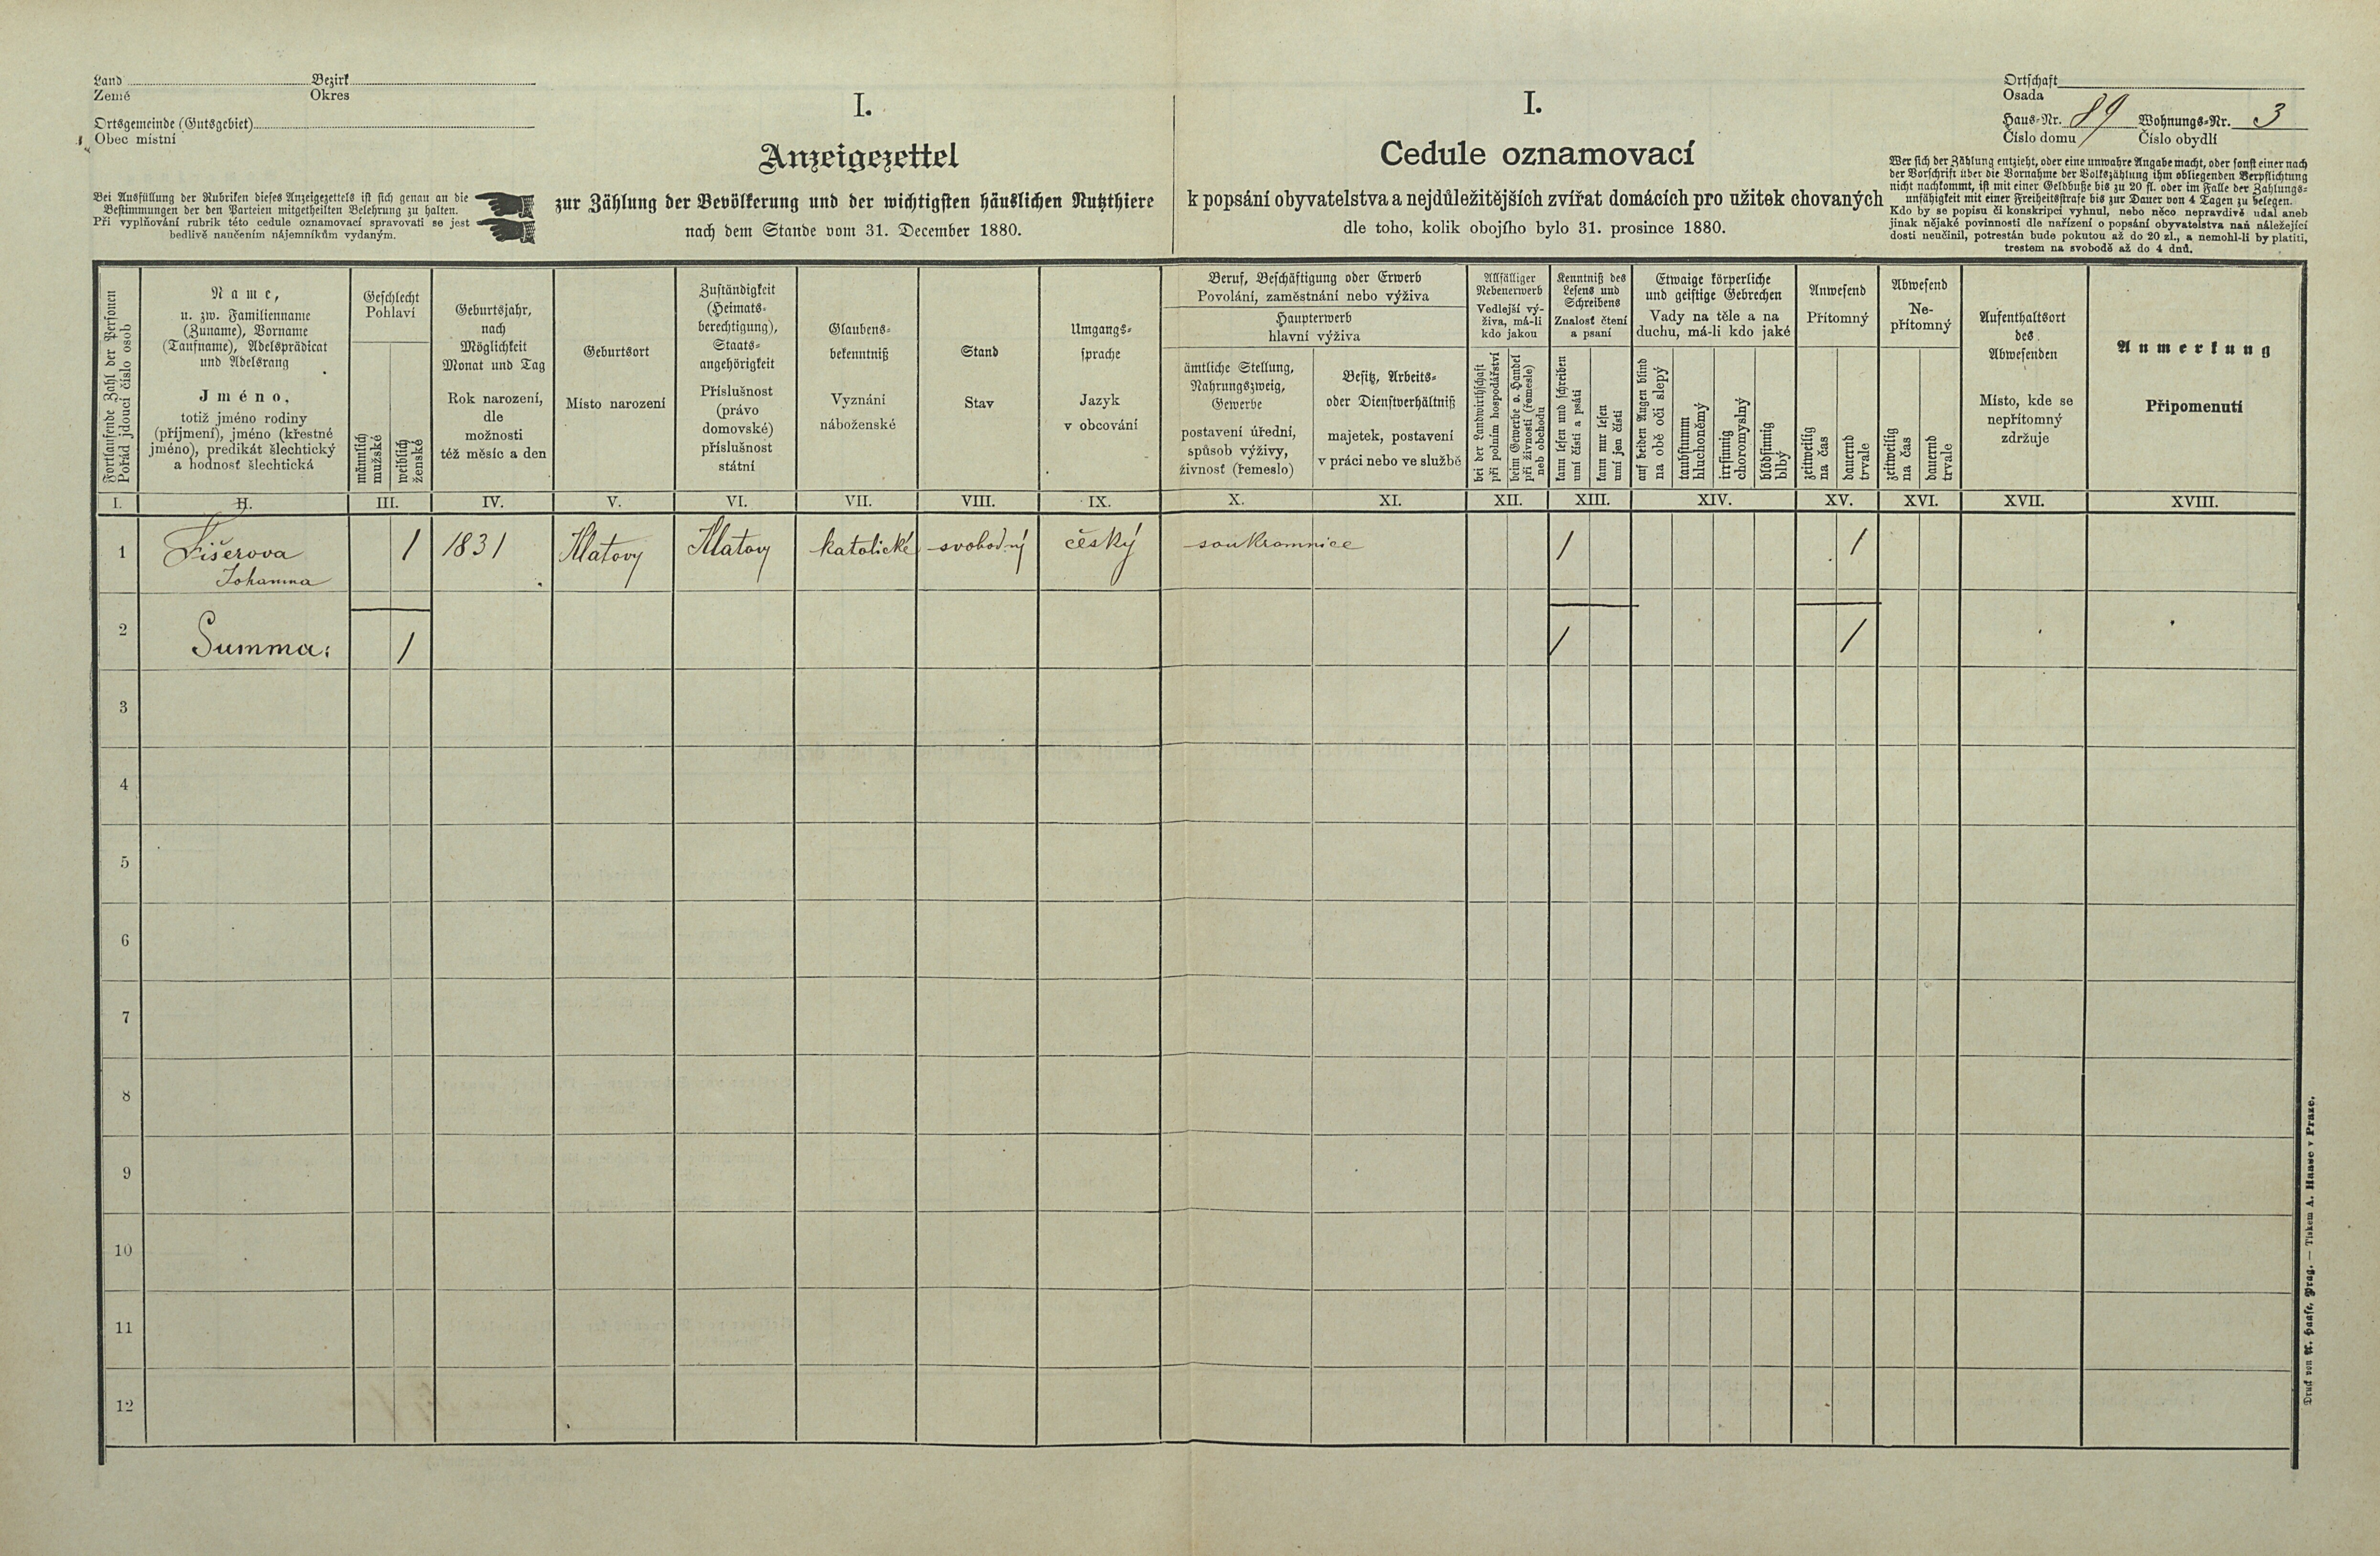 Land Bezirk
Země Okres
Ortsgemeinde (Gutsgebiet)
Obec místní
Bei Ausfüllung der Rubriken dieses Anzeigezettels ist sich genau an die
Bestimmungen der den Parteien mitgetheilten Belehrung zu halten.
Při vyplňování rubrik této cedule oznamovací spravovati se jest
bedlivě naučením nájemníkům vydaným.
I.
Anzeigezettel
zur Zählung der Bevölkerung und der wichtigsten häuslichen Nutzthiere
nach dem Stande vom 31. December 1880.
I.
Cedule oznamovací
k popsání obyvatelstva a nejdůležitějších zvířat domácích pro užitek chovaných
dle toho, kolik obojího bylo 31. prosince 1880.
Ortschaft
Osada
Haus-Nr. 89 Wohnungs-Nr. 3
Číslo domu Číslo obydlí
Wer sich der Zählung entzieht, oder eine unwahre Angabe macht, oder sonst einer nach
der Vorschrift über die Vornahme der Volkszählung ihm obliegenden Verpflichtung
nicht nachkommt, ist mit einer Geldbuße bis zu 20 fl. oder im Falle der Zahlungs-
unfähigkeit mit einer Freiheitsstrafe bis zur Dauer von 4 Tagen zu belegen.
Kdo by se popisu či konskripci vyhnul, nebo něco nepravdivě udal aneb
jinak nějaké povinnosti dle nařízení o popsání obyvatelstva naň náležející
dosti neučinil, potrestán bude pokutou až do 20 zl., a nemohl-li by platiti,
trestem na svobodě až do 4 dnů.
Fortlaufende Zahl der Personen
Pořád jdoucí číslo osob
Name,
u. zw. Familienname
(Zuname), Vorname
(Taufname), Adelsprädicat
und Adelsrang
Jméno,
totiž jméno rodiny
(příjmení), jméno (křestné
jméno), predikát šlechtický
a hodnosť šlechtická
Geschlecht
Pohlaví
männlich
mužské
weiblich
ženské
Geburtsjahr,
nach
Möglichkeit
Monat und Tag
Rok narození,
dle
možnosti
též měsíc a den
Geburtsort
Místo narození
Zuständigkeit
(Heimats-
berechtigung),
Staats-
angehörigkeit
Příslušnost
(právo
domovské)
příslušnost
státní
Glaubens-
bekenntniß
Vyznání
náboženské
Stand
Stav
Umgangs-
sprache
Jazyk
v obcování
Beruf, Beschäftigung oder Erwerb
Povolání, zaměstnání nebo výživa
Haupterwerb
hlavní výživa
ämtliche Stellung,
Nahrungszweig,
Gewerbe
postavení úřední,
spůsob výživy,
živnosť (řemeslo)
Besitz, Arbeits-
oder Dienstverhältniß
majetek, postavení
v práci nebo ve službě
Allfälliger
Nebenerwerb
Vedlejší vý-
živa, má-li
kdo jakou
bei der Landwirthschaft
při polním hospodářství
beim Gewerbe o. Handel
při živnosti (řemesle)
neb obchodu
Kenntniß des
Lesens und
Schreibens
Znalosť čtení
a psaní
kann lesen und schreiben
umí čísti a psáti
kann nur lesen
umí jen čísti
Etwaige körperliche
und geistige Gebrechen
Vady na těle a na
duchu, má-li kdo jaké
auf beiden Augen blind
na obě oči slepý
taubstumm
hluchoněmý
irrsinnig
choromyslný
blödsinnig
blbý
Anwesend
Přítomný
zeitweilig
na čas
dauernd
trvale
Abwesend
Ne-
přítomný
zeitweilig
na čas
dauernd
trvale
Aufenthaltsort
des
Abwesenden
Místo, kde se
nepřítomný
zdržuje
Anmerkung
Připomenutí
I. II. III. IV. V. VI. VII. VIII. IX. X. XI. XII. XIII. XIV. XV. XVI. XVII. XVIII.
1 Fišerova 1 1831 Klatovy Klatovy katolické svobodný český soukromnice 1 1
Johanna
2 Summa: 1 1 1
3
4
5
6
7
8
9
10
11
12
Druck von A. Haase, Prag. — Tiskem A. Haase v Praze.